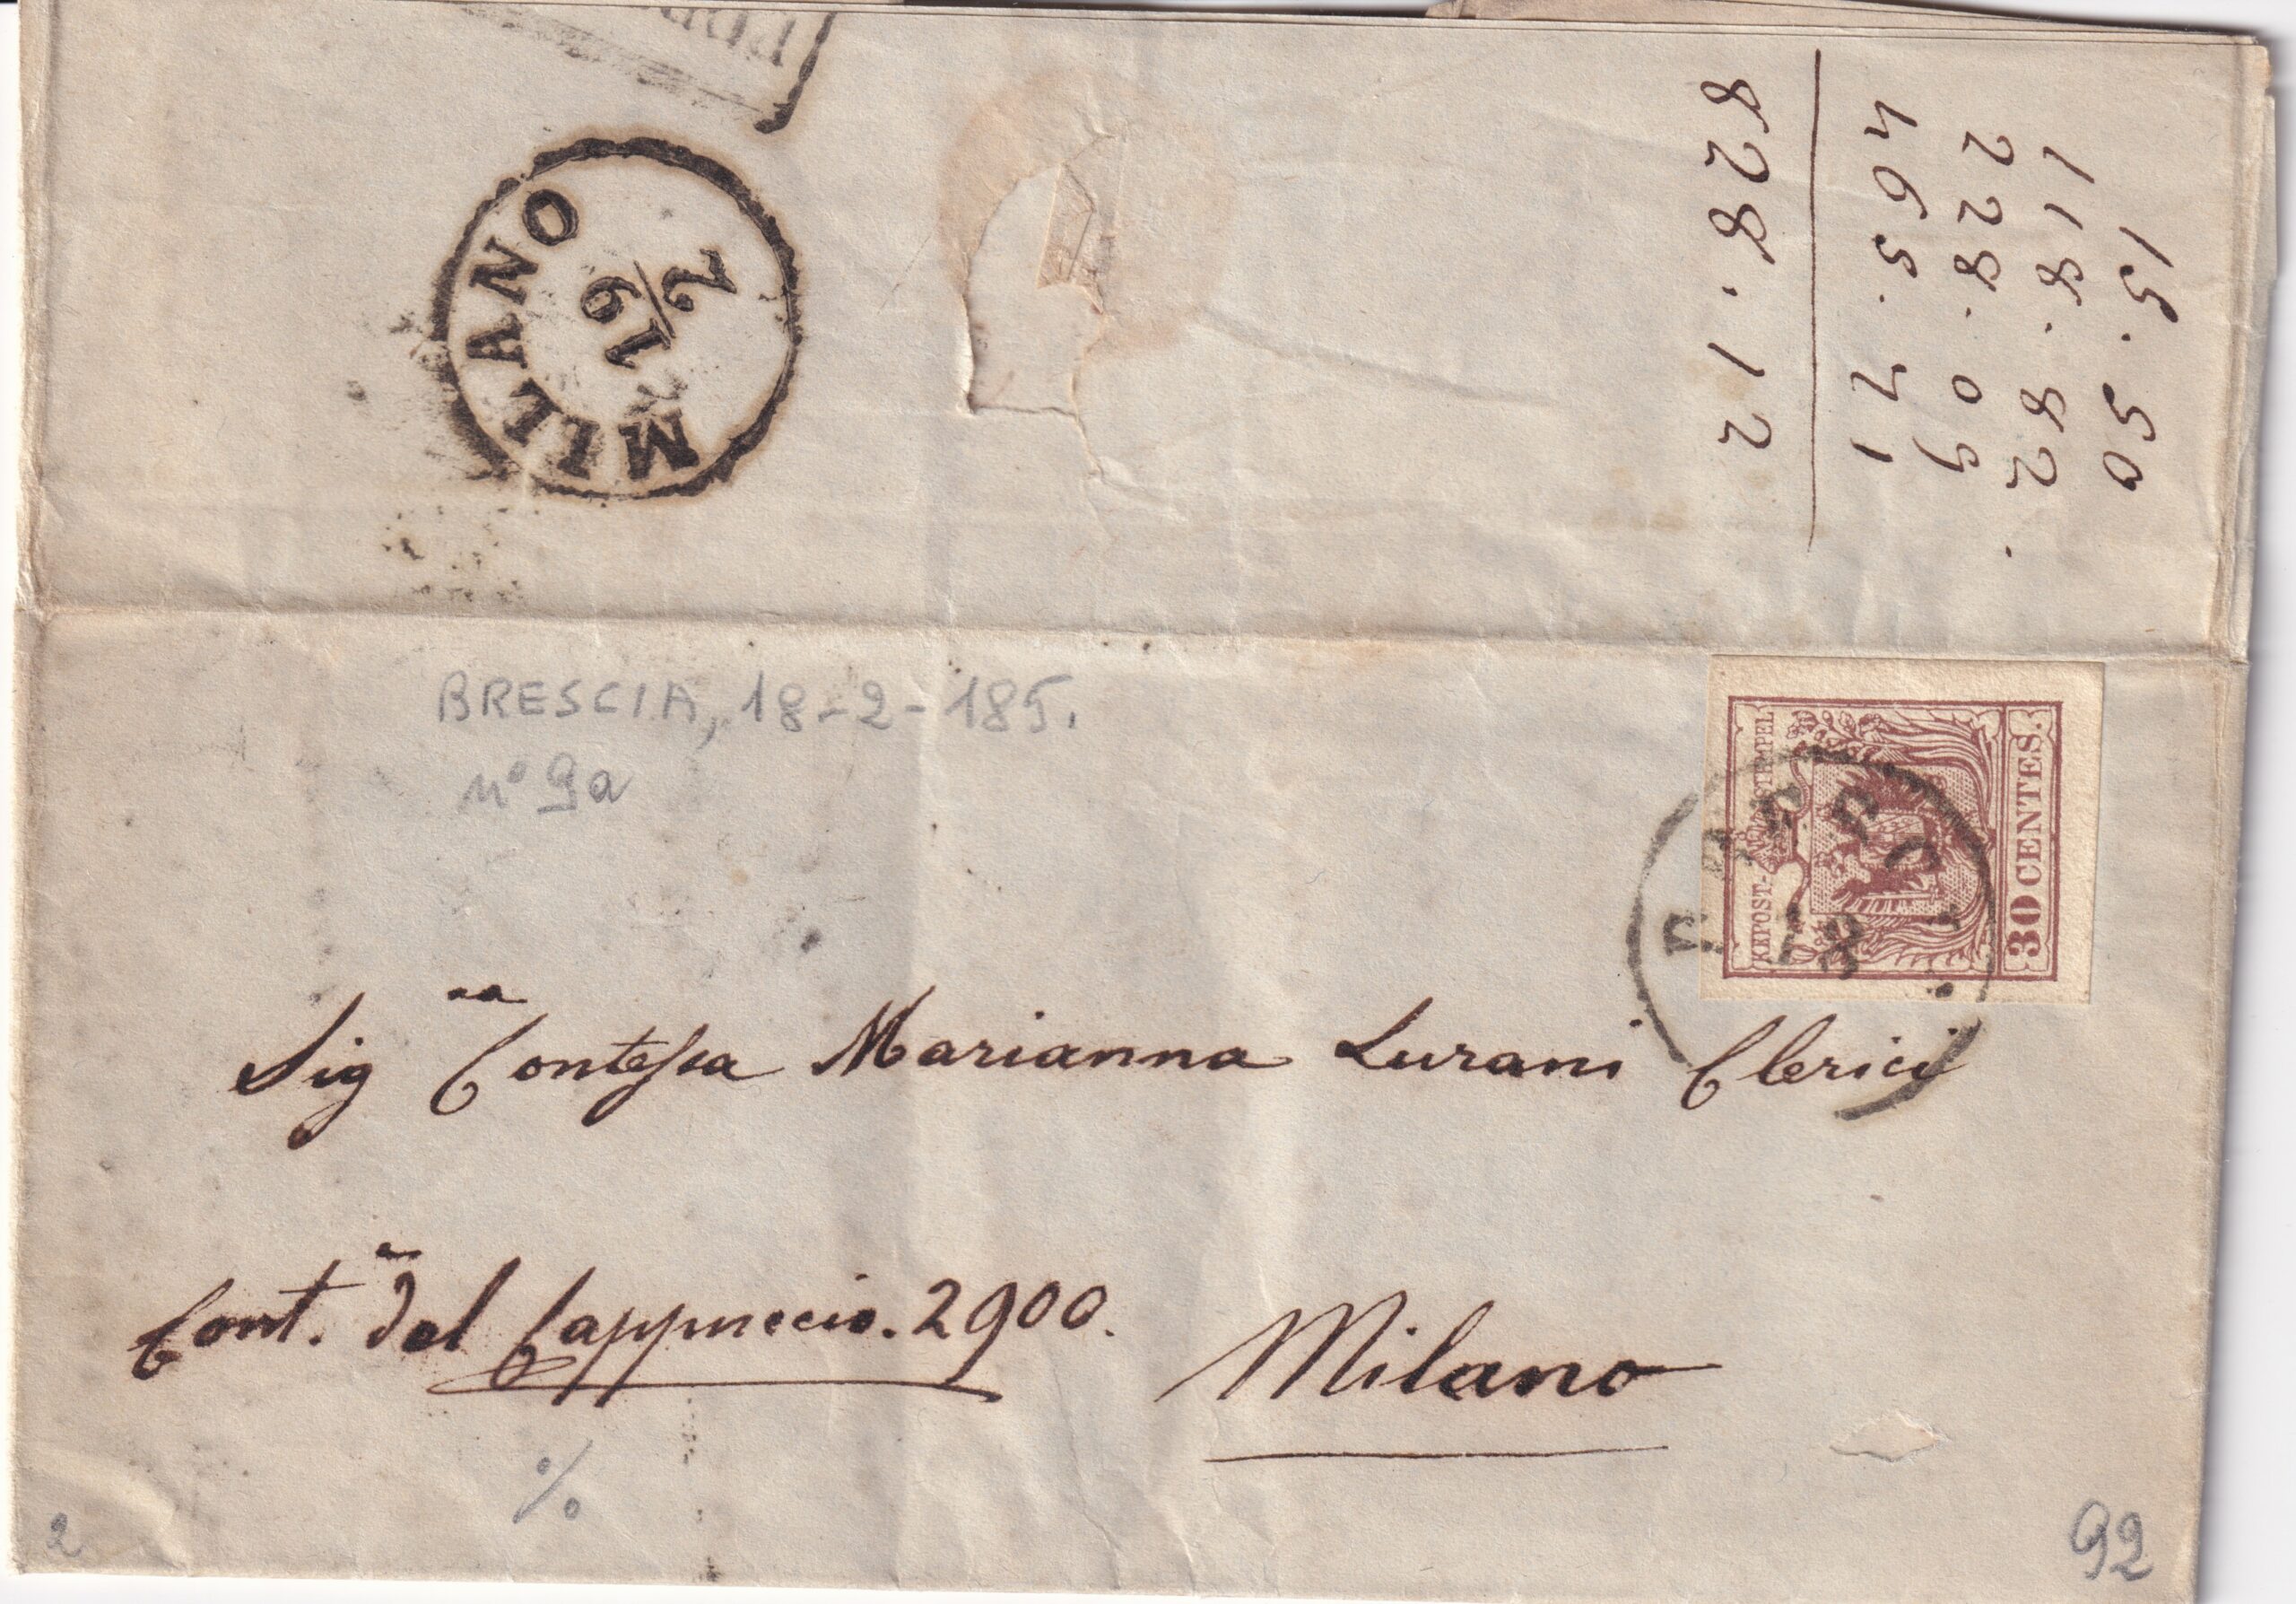 MILANO
19
2
15.50
118.82.
228.09
465.71
828.12
BRESCIA, 18-2-185.
n° 9a
KKPOST-STEMPEL
30 CENTES.
18
Sig.ra Contessa Marianna Lurani Clerici
Cont.a del Cappuccio. 2900.
Milano
%
2
92